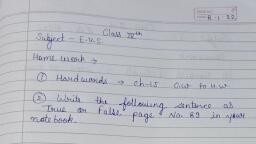 Class IVth
Subject - E.V.S.
Home work →
① Hard words → ch-15 C.W to H.W
② Write the following sentence as
True or False page No. 89 in your
notebook.